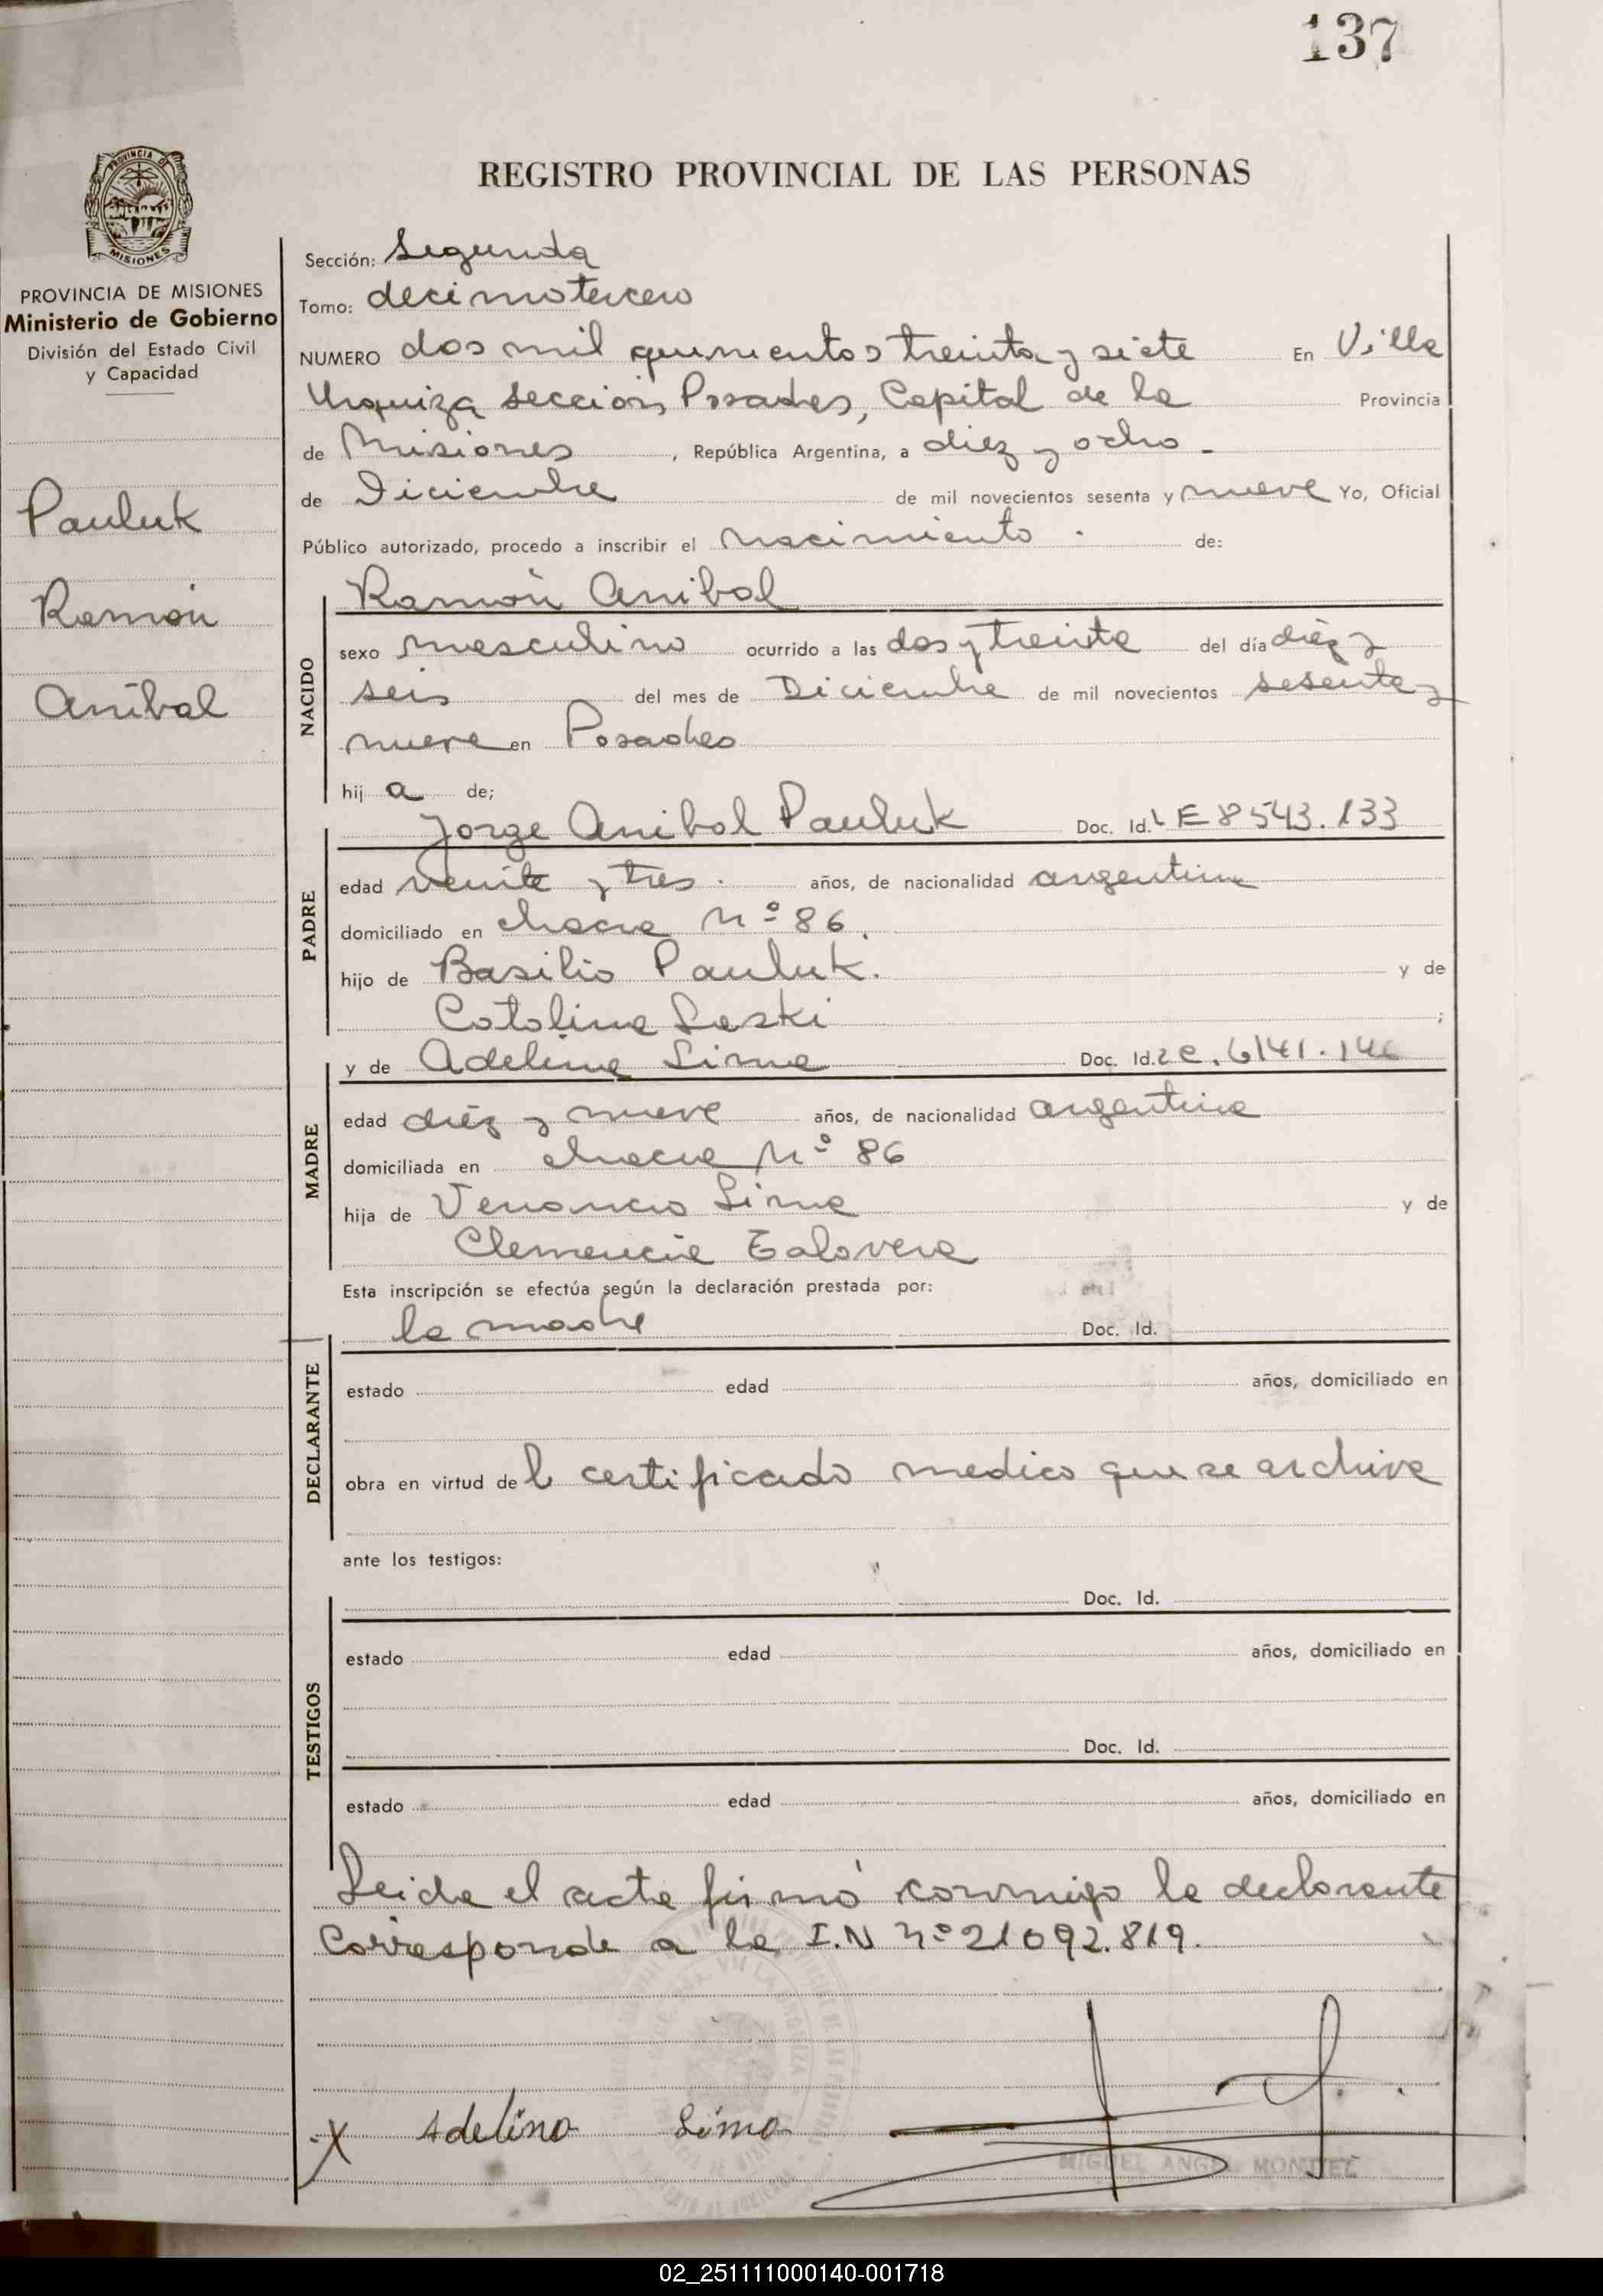 137
PROVINCIA DE
MISIONES
REGISTRO PROVINCIAL DE LAS PERSONAS
PROVINCIA DE MISIONES
Ministerio de Gobierno
División del Estado Civil
y Capacidad
Pauluk
Ramón
Aníbal
Sección: Segunda
Tomo: decimotercero
NUMERO dos mil quinientos treinta y siete En Villa
Urquiza sección Posadas, Capital de la Provincia
de Misiones, República Argentina, a diez y ocho -
de Diciembre de mil novecientos sesenta y nueve Yo, Oficial
Público autorizado, procedo a inscribir el nacimiento . de:
NACIDO
Ramón Anibal
sexo masculino ocurrido a las dos y treinta del día diez y
seis del mes de Diciembre de mil novecientos sesenta y
nueve en Posadas
hij a de;
PADRE
Jorge Anibal Pauluk Doc. Id. LE 8543.133
edad veinte y tres . años, de nacionalidad argentina
domiciliado en chacra Nº 86.
hijo de Basilio Pauluk. y de
Catalina Leski ;
MADRE
y de Adelina Lima Doc. Id.
edad diez y nueve años, de nacionalidad argentina
domiciliada en chacra Nº 86
hija de Venancio Lima y de
Clemencia Talavera
Esta inscripción se efectúa según la declaración prestada por:
DECLARANTE
la madre Doc. Id.
estado edad años, domiciliado en
obra en virtud de l certificado medico que se archiva
ante los testigos:
TESTIGOS
Doc. Id.
estado edad años, domiciliado en
Doc. Id.
estado edad años, domiciliado en
Leida el acta firmó conmigo la declarante
Corresponde a la I.N nº 21092.819.
X Adelina Lima
MIGUEL ANGEL
02_251111000140-001718